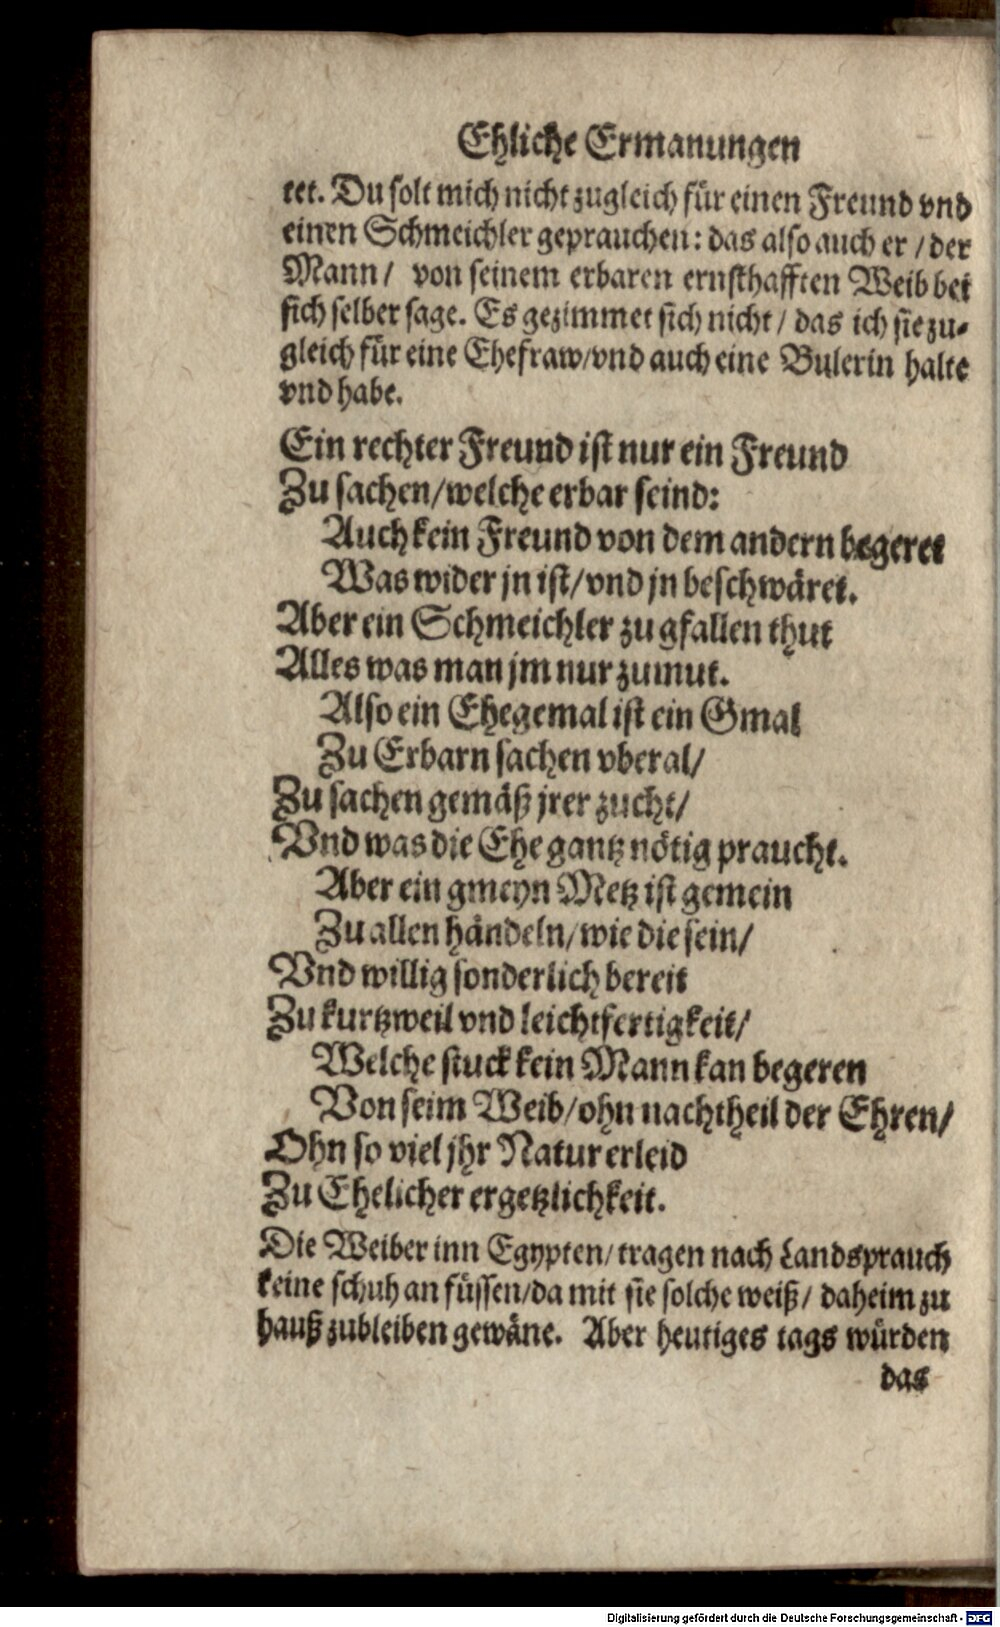 Ehliche Ermanungen
tet. Du solt mich nicht zugleich für einen Freund vnd
einen Schmeichler geprauchen: das also auch er / der
Mann / von seinem erbaren ernsthafften Weib bei
sich selber sage. Es gezimmet sich nicht / das ich sie zu-
gleich für eine Ehefraw / vnd auch eine Bulerin halte
vnd habe.
Ein rechter Freund ist nur ein Freund
Zu sachen / welche erbar seind:
Auch kein Freund von dem andern begeret
Was wider jn ist / vnd jn beschwäret.
Aber ein Schmeichler zu gfallen thut
Alles was man jm nur zumut.
Also ein Ehegemal ist ein Gmal
Zu Erbarn sachen vberal /
Zu sachen gemäß jrer zucht /
Vnd was die Ehe gantz nötig praucht.
Aber ein gmeyn Metz ist gemein
Zu allen händeln / wie die sein /
Vnd willig sonderlich bereit
Zu kurtzweil vnd leichtfertigkeit /
Welche stuck kein Mann kan begeren
Von seim Weib / ohn nachtheil der Ehren /
Ohn so viel jhr Natur erleid
Zu Ehelicher ergetzlichkeit.
Die Weiber inn Egypten / tragen nach Landsprauch
keine schuh an füssen / da mit sie solche weiß / daheim zu
hauß zubleiben gewäne. Aber heutiges tags würden
das
Digitalisierung gefördert durch die Deutsche Forschungsgemeinschaft - DFG